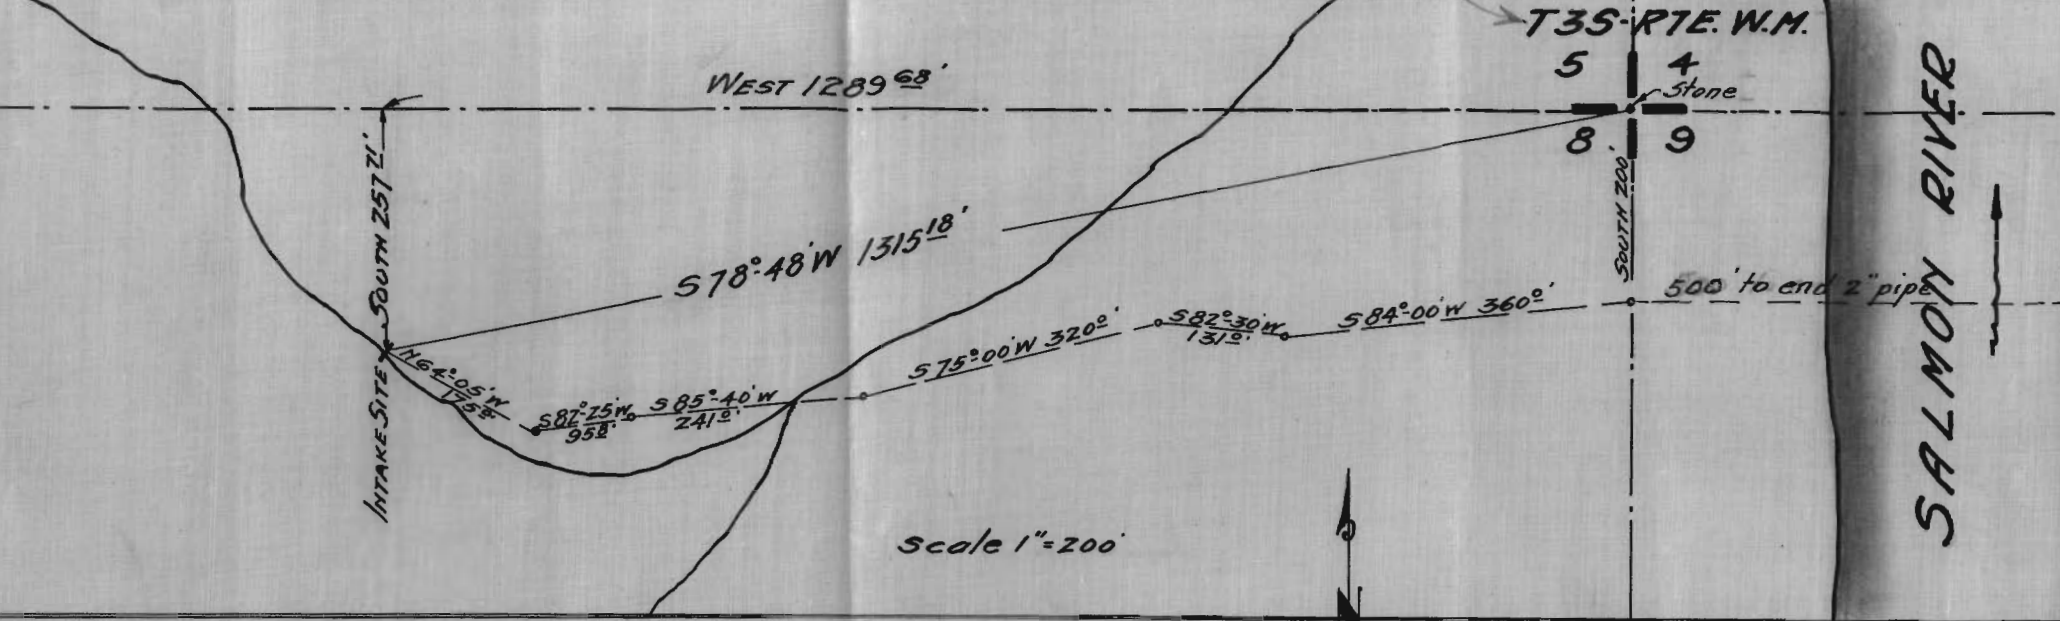 T3S-R7E. W.M.
5 4
Stone
8 9
WEST 1289 68'
SOUTH 257 21'
INTAKE SITE
S78°-48'W 1315 18'
SOUTH 200'
500' to end 2" pipe
S84°-00'W 360 0'
S82°-30'W
131 0'
S75°00'W 320 0'
S85°-40'W
241 0'
S82°-25'W
95 8'
N64°-05'W
Scale 1"=200'
SALMON RIVER